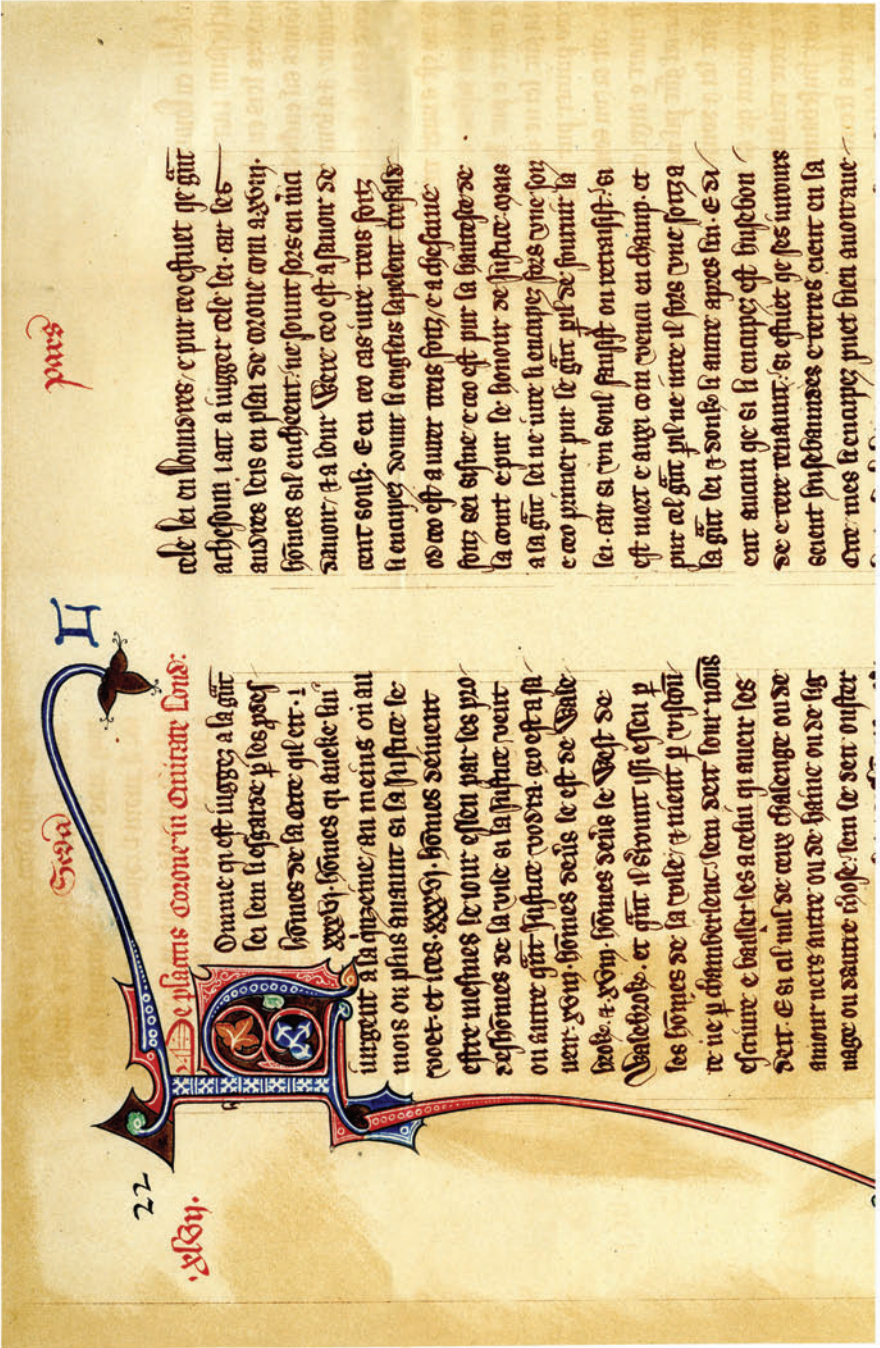 Scda
pars
22
.xlvij.
De placitis Corone in Ciuitate Lond:
Omme qi est iuggez a la gñt
lei lem li esgarde p les pses
hõmes de la cite qil eit . i
xxxvj. hõmes qi aueke lui
iurgent a la qinzeine/ au meins ou au
mois ou plus auant si la Justice le
voet. et ices .xxxvj. hõmes deiuent
estre mesmes le iour esleu par les pro
deshõmes de la vile si la Justice veut
ou autre gñt Justice vodra. ceo est a sa
ueir. xviij. hõmes deũs le est de Wale
brok. & .xviij. hõmes deũs le West de
Walebrok. et gñt il serount issi esleu p
les hõmes de la vile/ & nient p viscou
te ne p chamberlenc. lem deit lour nouns
escriure e bailler les a celui qi aueir les
deit. E si al nul de ceux chalenge ou de
amour uers autre ou de haine ou de lig
nage ou dautre chose: lem le deit ouster
cele lei en loundres/ e pur ceo estuet qe gñt
achesoun i att a iugger cele lei. car les
audres leis en plai de corone cum a .xviij.
hõmes sil encheent: ne sount fors en mci
dauoir/ & a lour Were ceo est a sauoir de
cent souz. E en ceo cas iure treis foiz
li encupez dount li engleis lapelent threfald
od ceo est a iurer treis foiz/ e a chescune
foiz sei sisme e ceo est pur la hautesce de
la court e pur le honour de Justice. Mais
a la gñt lei ne iure li encupez fors vne foiz
e ceo primer pur le gñt pil de fournir la
lei. car si vn soul fausist ou retraisist: si
est mort e auxi cum vencu en champ. et
pur cel gñt pil ne iure il fors vne foiz a
la gñt lei & donke li autre apres lui. E si
ent aucun qe si li encupez est husebon
de e tere tenaunt: si estuet qe ses iurours
seient husebaundes e terres eient en la
Cite mes li encupez puet bien auoir aue